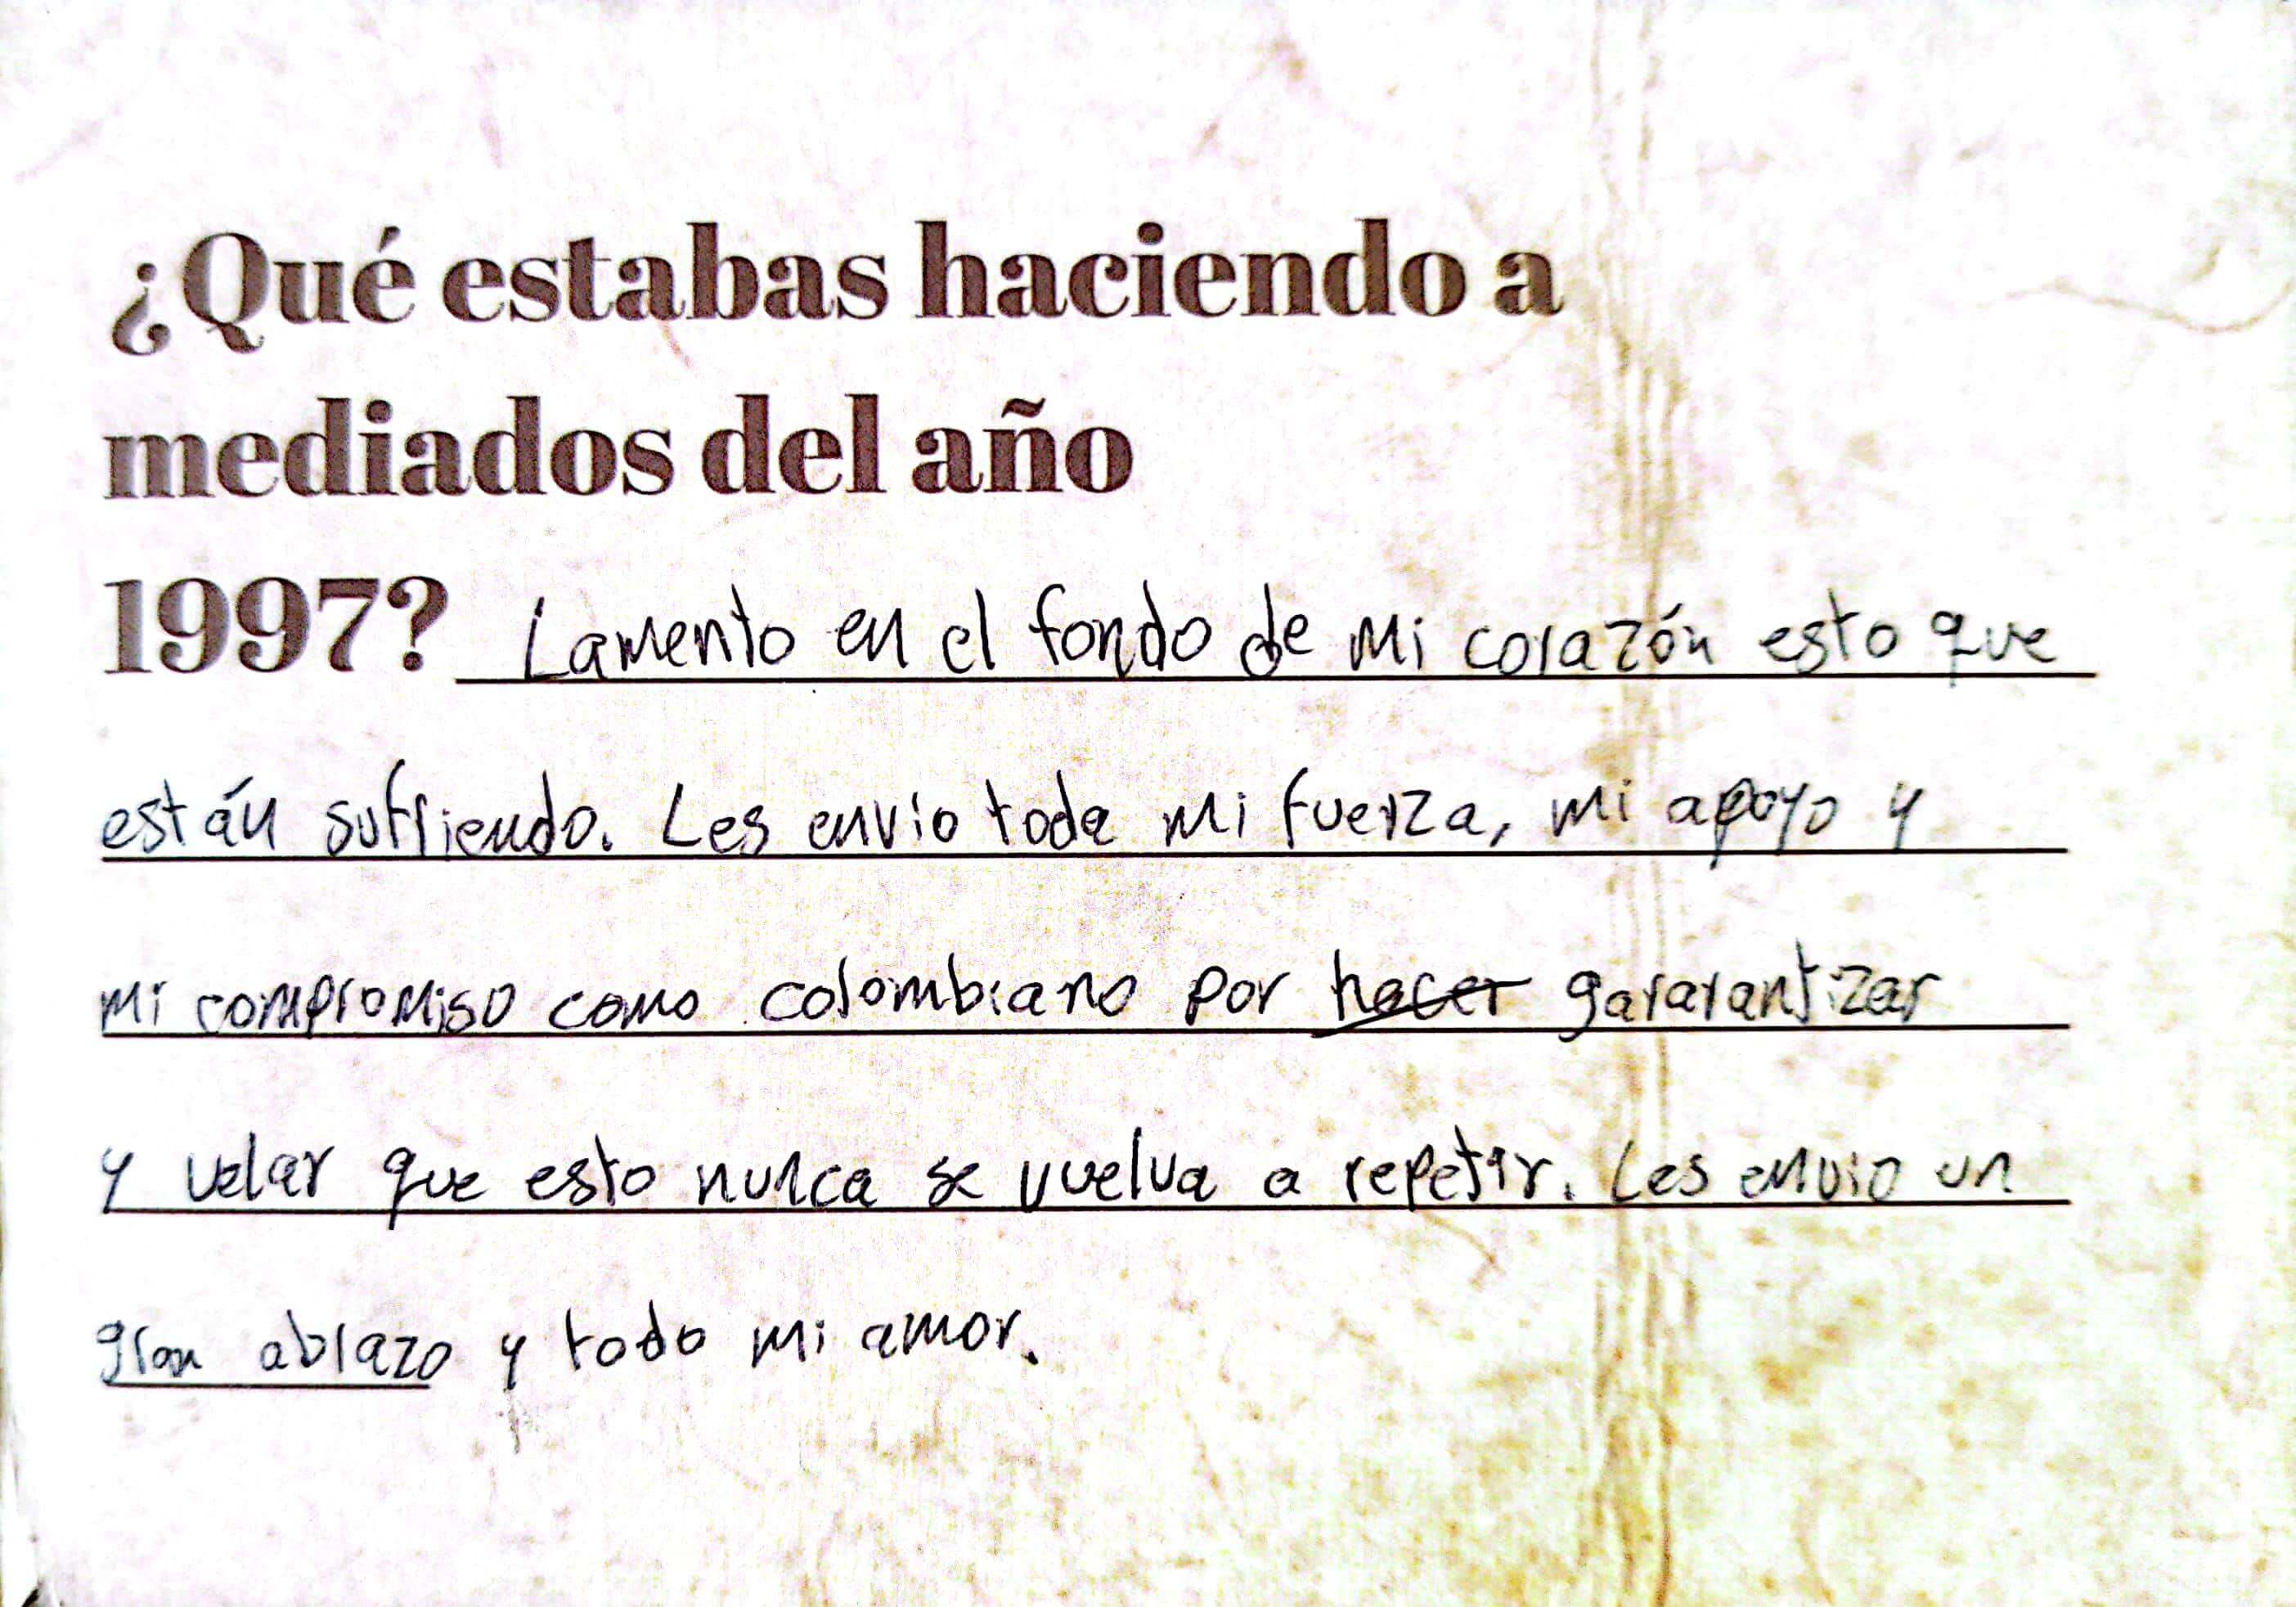 ¿Qué estabas haciendo a
mediados del año
1997? Lamento en el fondo de mi corazón esto que
están sufriendo. Les envio toda mi fuerza, mi apoyo y
mi compromiso como colombiano por hacer gararantizar
y velar que esto nunca se vuelva a repetir. Les envio un
gran abrazo y todo mi amor.